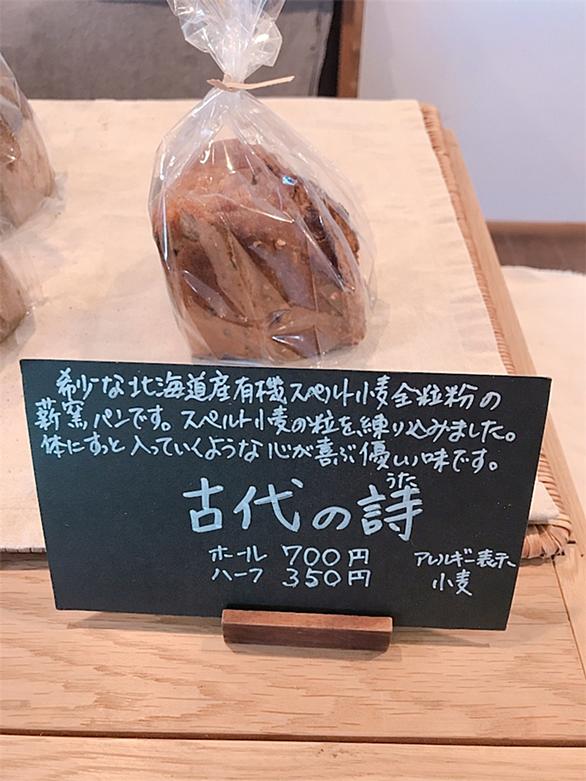 希少な北海道産有機スペルト小麦全粒粉の
薪窯パンです。スペルト小麦の粒を練り込みました。
体にすっと入っていくような心が喜ぶ優しい味です。
うた
古代の詩
ホール 700円
ハーフ 350円
アレルギー表示
小麦